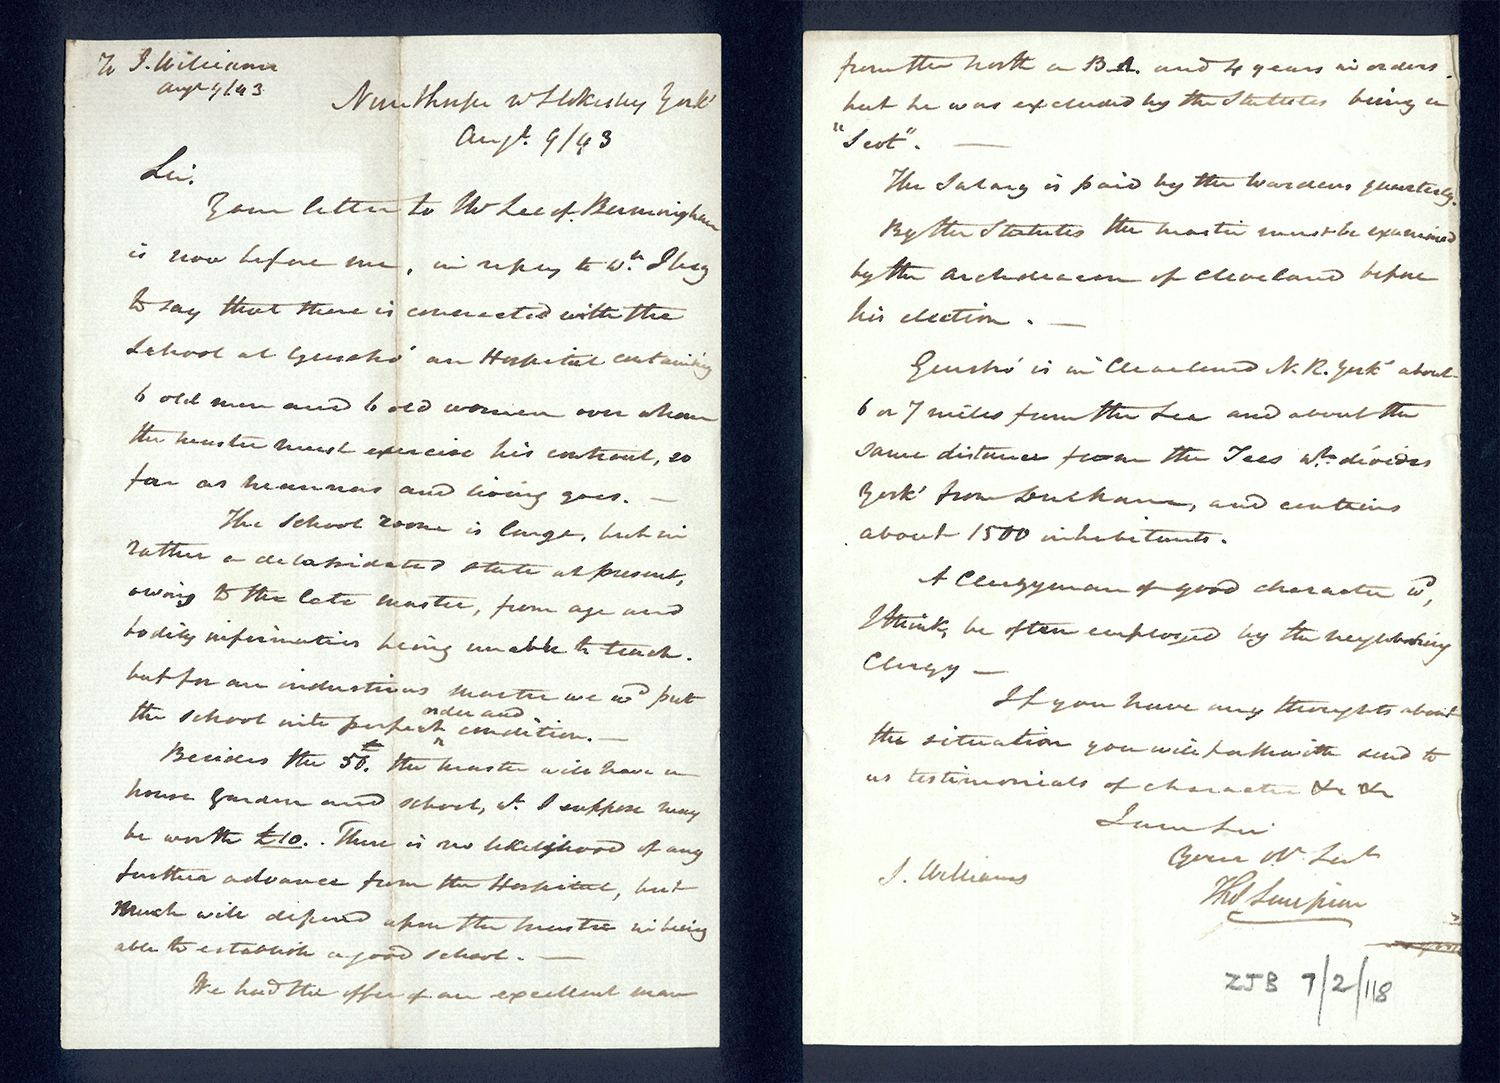 To J. Williams
Augt 9/43
Nunthorpe nr Stokesley York'
Augt. 9/43
Sir.
Your letter to Mr Lee of Birmingham
is now before me, in reply to wh I beg
to say that there is connected with the
School at Guisbro' an Hospital containing
6 old men and 6 old women over whom
the master must exercise his controul, so
far as manners and living goes. —
The School room is large, but in
rather a delapidated state at present,
owing to the late master, from age and
bodily infirmities being unable to teach.
but for an industrious master we wd put
the school into perfect order and condition. —
Besides the 50£. the master will have a
house garden and school, wh I suppose may
be worth £10. . There is no likelihood of any
further advance from the Hospital, but
much will depend upon the master in being
able to establish a good school. —
We had the offer of an excellent man
from the north a B.A. and 4 years in orders.
but he was excluded by the Statutes being a
"Scot". —
The Salary is paid by the Wardens quarterly.
By the Statutes the master must be examined
by the Archdeacon of Cleveland before
his election. —
Guisbro' is in Cleveland N.R. York' about
6 or 7 miles from the Sea and about the
same distance from the Tees wh divides
York' from Durham, and contains
about 1500 inhabitants.
A Clergyman of good character wd,
I think, be often employed by the neighbouring
Clergy —
If you have any thoughts about
the situation you will forthwith send to
us testimonials of character &c &c
I am Sir
Your Ob Sert
Thos Simpson
J. Williams
ZJB 7/2/118